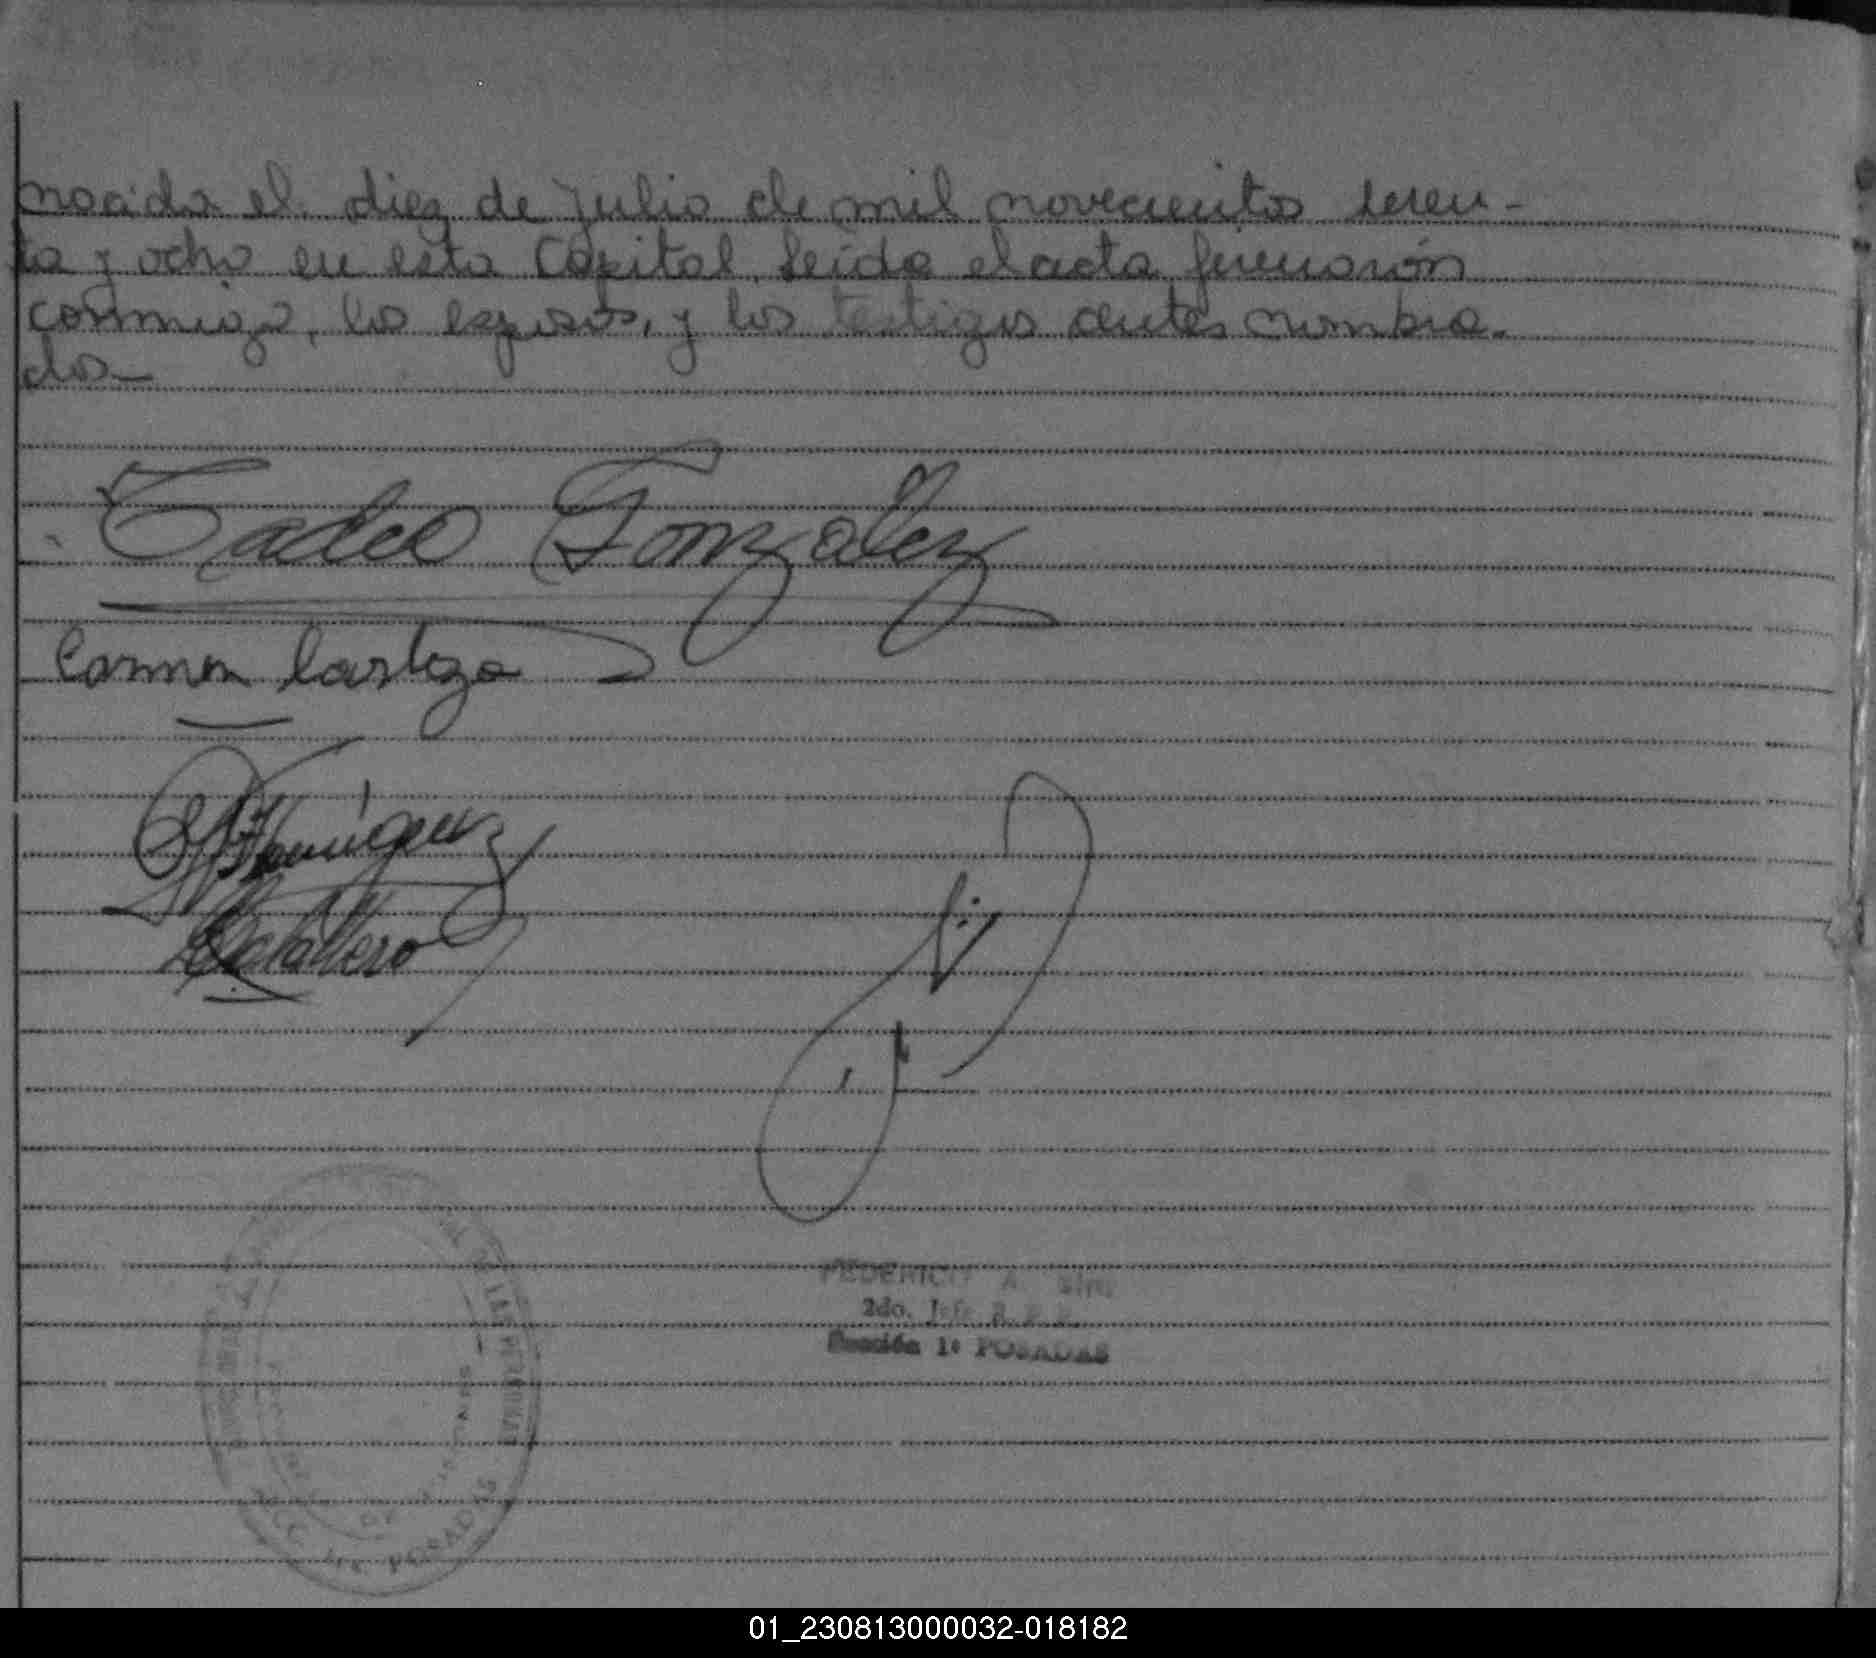 nacida el diez de julio de mil novecientos sesen-
ta y ocho en esta Capital. Leída el acta firmarón
conmigo, los esposos, y los testigos antes nombra-
dos-
Tadeo Gonzalez
Carmen
Caballero
FEDERICO A.
2do. Jefe R. P. P.
Sección 1ª POSADAS
DE LAS PERSONAS
POSADAS
01_230813000032-018182